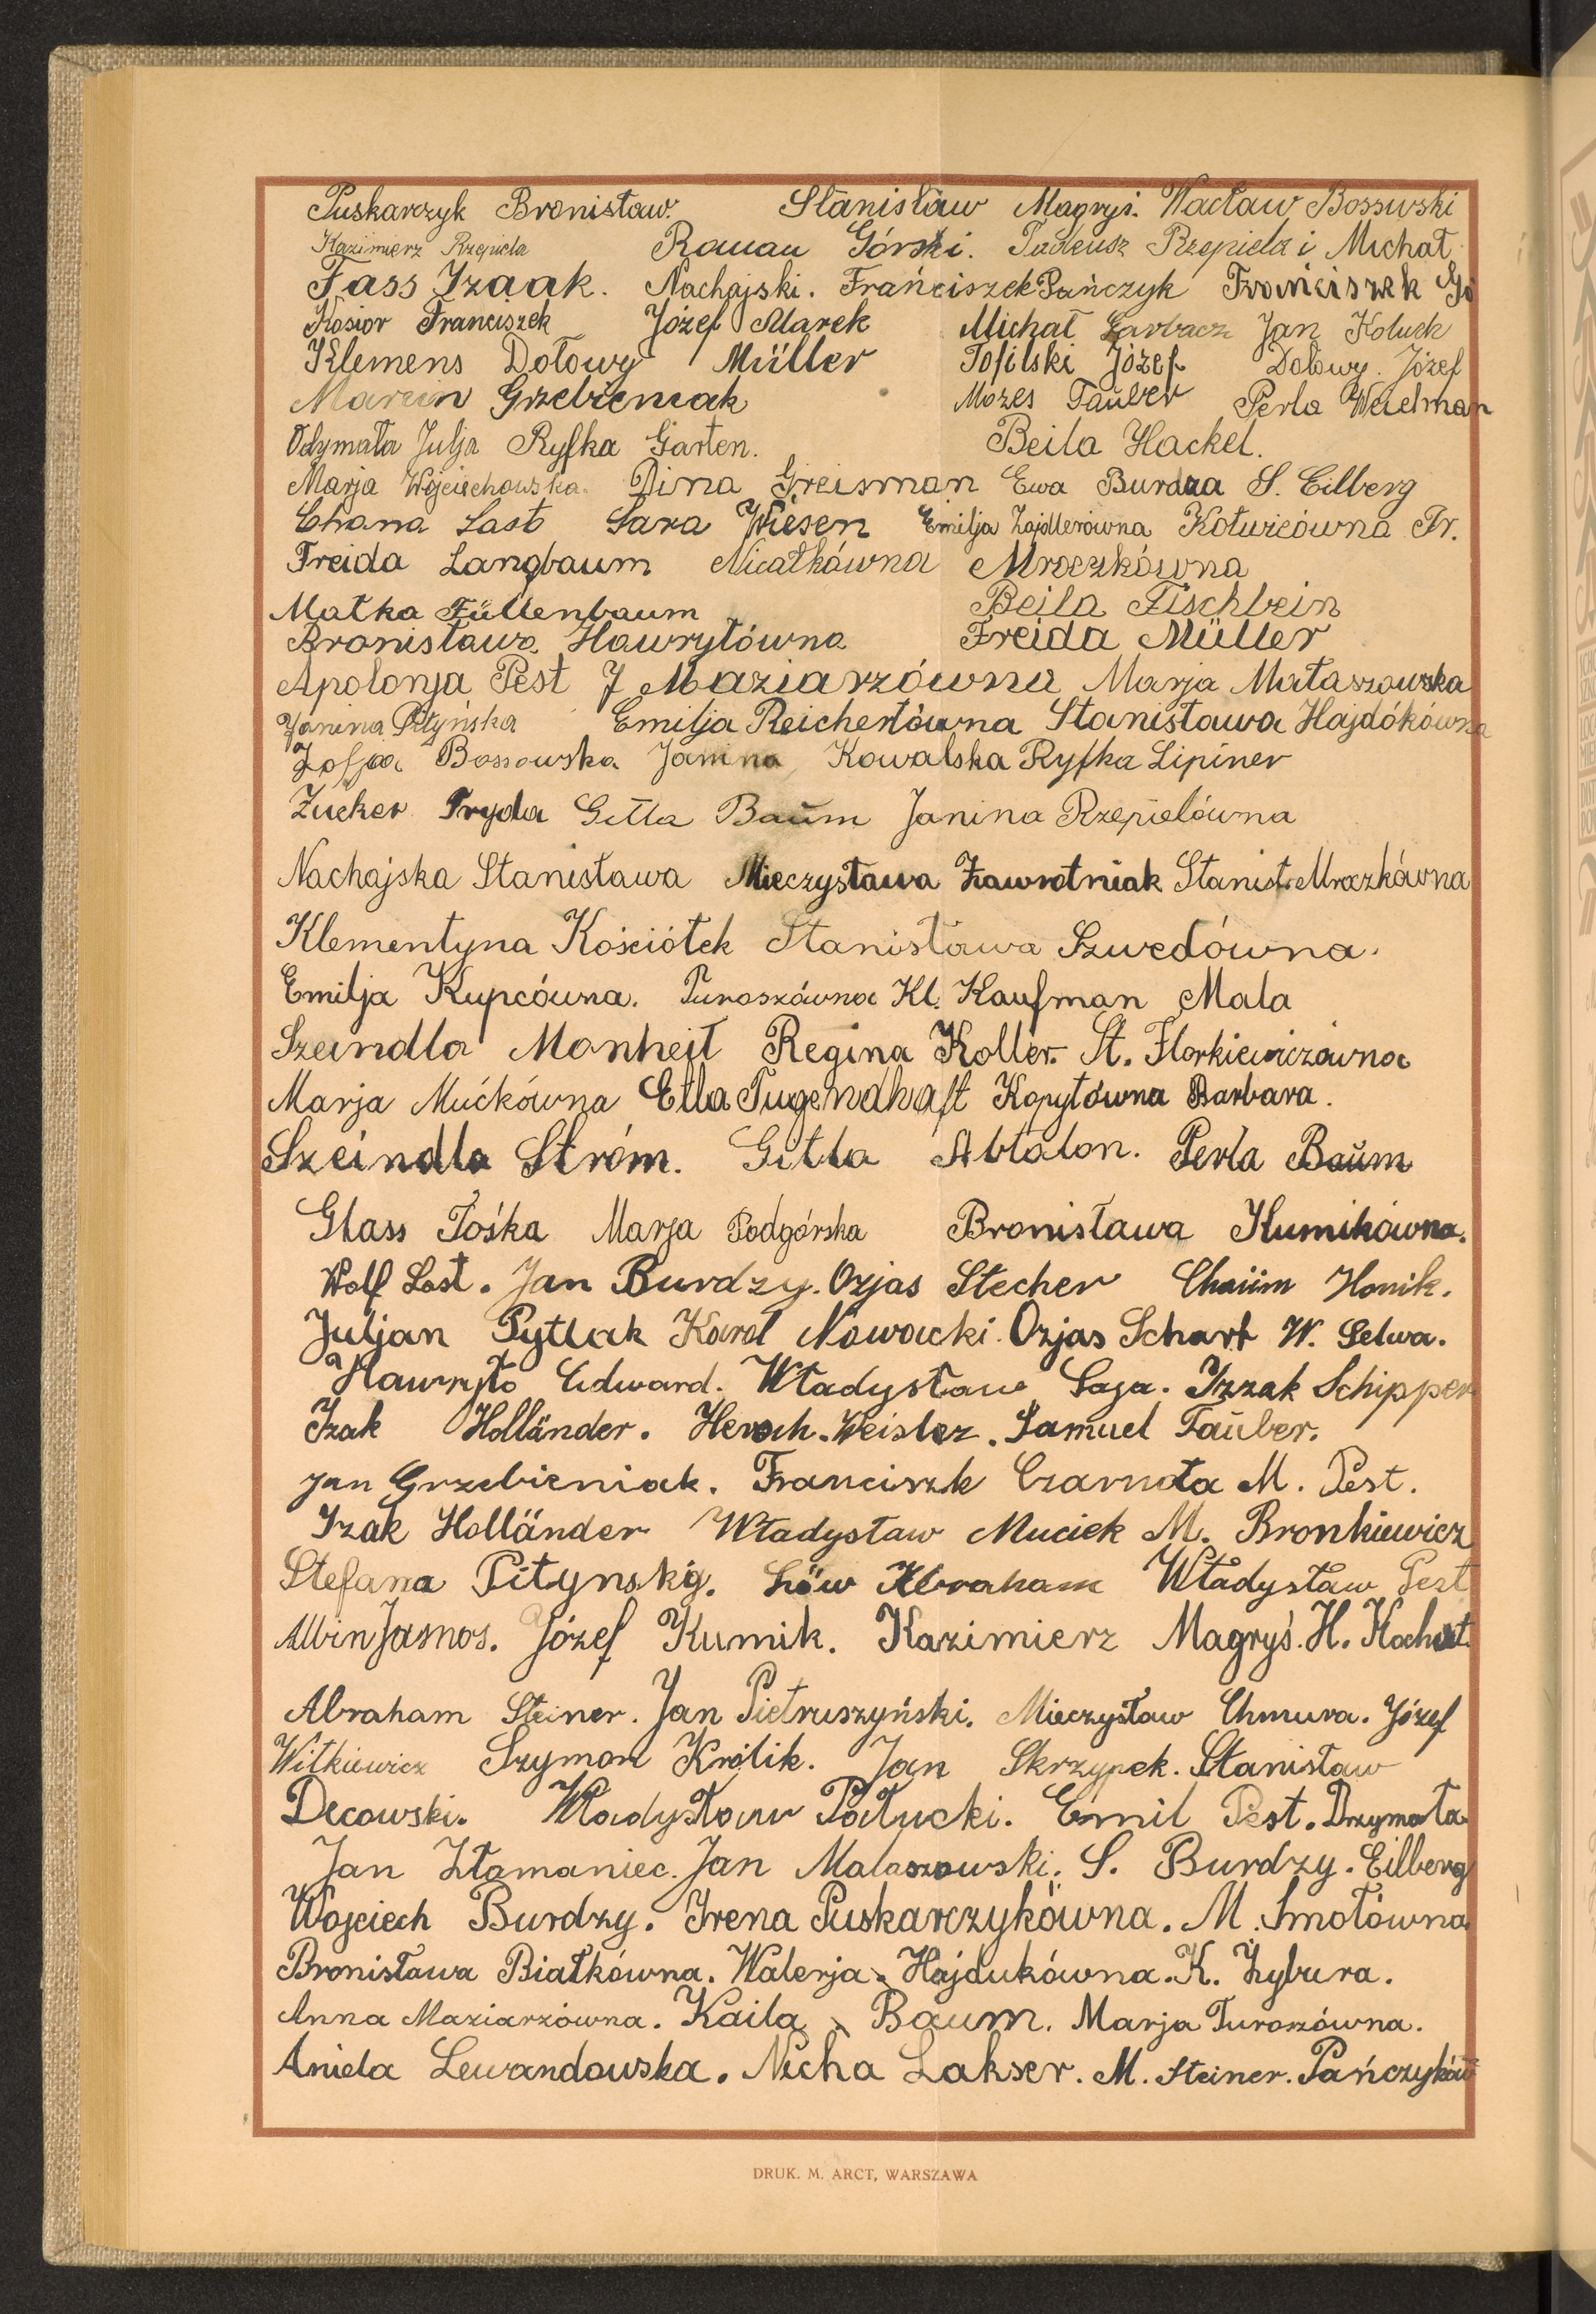 Puskarczyk Bronisław. Stanisław Magryś. Wacław Bosswski
Kazimierz Rzepiela Roman Górski. Tadeusz Rzepiela i Michał
Fass Izaak. Nachajski. Franciszek Pańczyk Franciszek Go
Kosior Franciszek Józef Marek Michał Garbacz Jan Kołuck
Klemens Dołowy Müller Tofilski Józef Dołowy. Józef
Marcin Grzebieniak Mozes Tauber Perla Weidman
Odymała Julja Ryfka Garten. Beila Hackel.
Marja Wojciechowska. Dina Greisman Ewa Burdza S. Eilberg
Chana Last Sara Wiesen Emilja Zajdlerówna Kotwicówna Fr.
Freida Langbaum Micałkówna Mroczkówna
Matka Füllenbaum Beila Fischbein
Bronisława Hawryłówna Freida Müller
Apolonja Pest J Maziarzówna Marja Mataszowska
Janina Pityńska Emilja Reichertówna Stanisława Hajdókówna
Zofja Bossowska Janina Kowalska Ryfka Lipiner
Zucker Fryda Gitla Baum Janina Rzepielówna
Nachajska Stanisława Mieczysława Zawrotniak Stanisł. Mroczkówna
Klementyna Kościółek Stanisława Szwedówna.
Emilja Kupcówna. Turoszówna Kl. Kaufman Mala
Szeindla Manheit Regina Koller. St. Florkiewiczówna
Marja Mućkówna Etla Tugendhaft Kopytówna Barbara.
Szeindla Stróm. Gitla Abtalon. Perla Baum
Glass Tośka Marja Podgórska Bronisława Kumikówna.
Wolf Last. Jan Burdzy. Ozjas Stecher Chaiim Honik.
Juljan Pytlak Karol Nowacki. Ozjas Scharf W. Selwa.
Hawryło Edward. Władysław Saja. Izzak Schipper
Izak Holländer. Hersch. Weisler. Samuel Tauber.
Jan Grzebieniak. Franciszk Czarnota M. Pest.
Izak Holländer Władysław Muciek M. Bronkiewicz
Stefana Pitynskig. Löw Abraham Władysław Pest
Albin Jasnos. Józef Kumik. Kazimierz Magryś. H. Kochut.
Abraham Steiner. Jan Pietruszyński. Mieczysław Chmura. Józef
Witkiewicz Szymon Królik. Jan Skrzypek. Stanisław
Decowski. Władysław Pałucki. Emil Pest. Drzymała
Jan Złamaniec. Jan Malaszowski. S. Burdzy. Eilberg
Wojciech Burdzy. Irena Puskarczykówna. M. Smołówna
Bronisława Białkówna. Walerja. Hajdukówna. K. Zybura.
Anna Maziarzówna. Kaila Baum. Marja Turoszówna.
Aniela Lewandowska. Necha Lakser. M. Steiner. Pańczyków
DRUK. M. ARCT, WARSZAWA